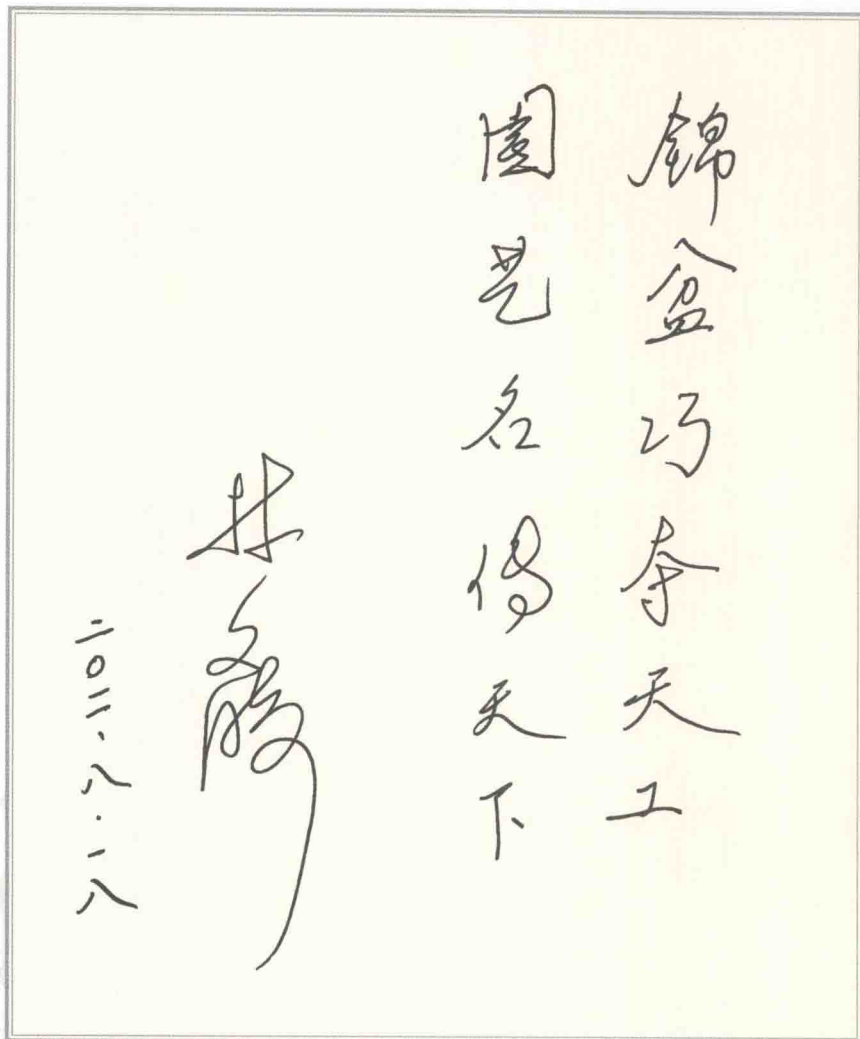 錦盆巧夺天工
園艺名傳天下
林文
二〇一一、八·一八